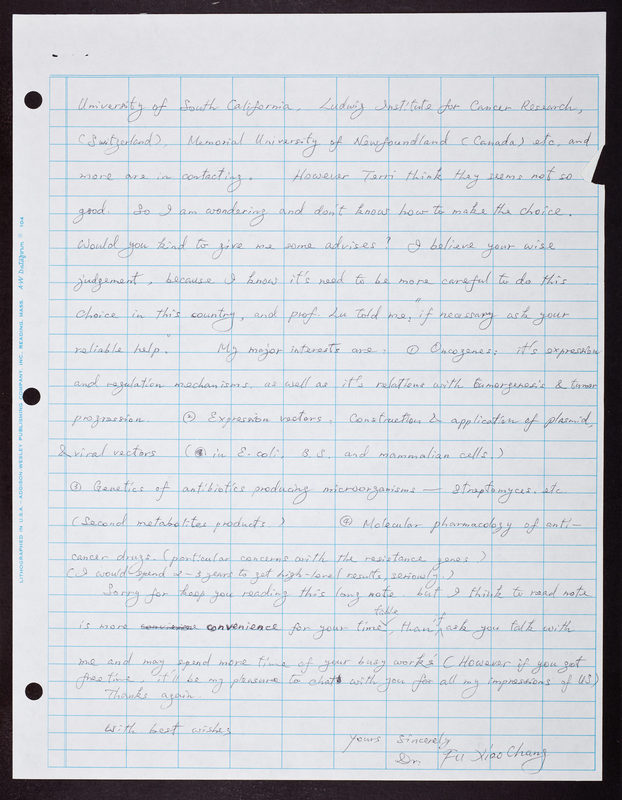 University of South California, Ludwig Institute for Cancer Research,
(Switzerland), Memorial University of Newfoundland (Canada) etc. and
more are in contacting. However Terri think they seems not so
good. So I am wondering and don't know how to make the choice.
Would you kind to give me some advises? I believe your wise
judgement, because I know it's need to be more careful to do this
choice in this country, and prof. Lu told me, "if necessary ask your
reliable help." My major interests are: ① Oncogenes: it's expression
and regulation mechanisms, as well as it's relations with tumorgenesis & tumor
progression. ② Expression vectors: Construction & application of plasmid,
& viral vectors (in E. coli, B.S. and mammalian cells.)
③ Genetics of antibiotics producing microorganisms — Streptomyces. etc.
(Second metabolites products.) ④ Molecular pharmacology of anti-
cancer drugs. (particular concerns with the resistance genes)
(I would spend 2-3 years to get high-level results, seriously.)
Sorry for keep you reading this long note. but I think to read note
is more convenience for your time table, than if ask you talk with
me and may spend more time of your busy works (However if you got
free time. it'll be my pleasure to chat with you for all my impressions of US)
Thanks again.
With best wishes
Yours Sincerely
Dr. Fu Xiao Chang
LITHOGRAPHED IN U.S.A. - ADDISON-WESLEY PUBLISHING COMPANY, INC. READING, MASS. A·W Dataform ® 104